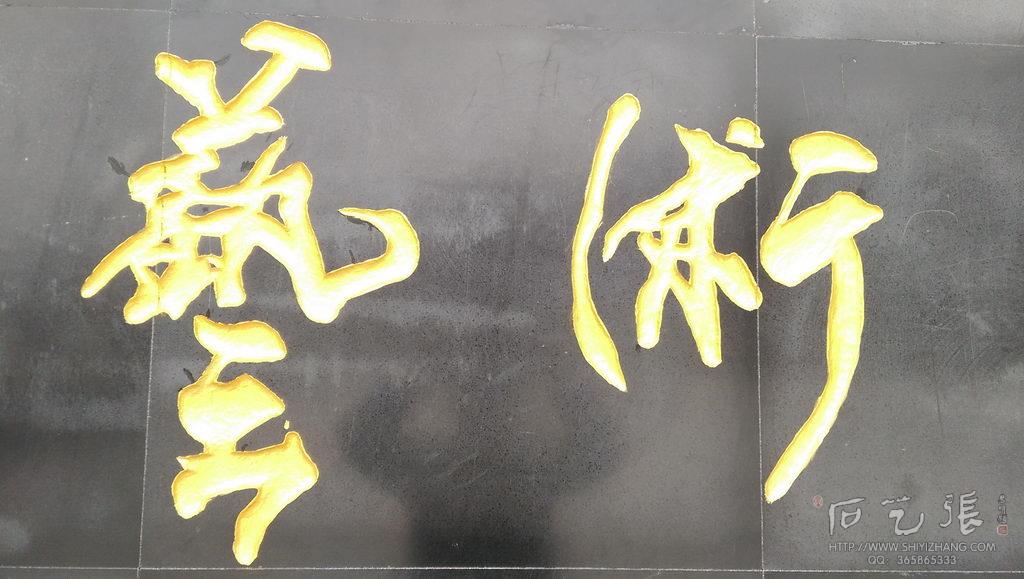 藝術
石艺張
HTTP://WWW.SHIYIZHANG.COM
QQ: 365865333